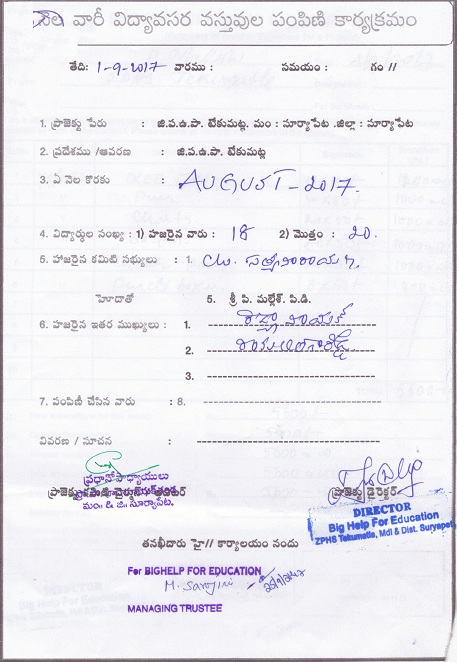 నెల వారీ విద్యావసర వస్తువుల పంపిణి కార్యక్రమం
తేది: 1-9-2017 వారము : సమయం : గం //
1. ప్రాజెక్టు పేరు : జి.ప.ఉ.పా. టేకుమట్ల. మం : సూర్యాపేట .జిల్లా : సూర్యాపేట
2. ప్రదేశము /ఆవరణ : జి.ప.ఉ.పా. టేకుమట్ల
3. ఏ నెల కొరకు : AUGUST-2017.
4. విద్యార్థుల సంఖ్య : 1) హజరైన వారు : 18 2) మొత్తం : 20.
5. హాజరైన కమిటి సభ్యులు : 1. Ch. సత్యనారాయణ.
హెూదాతో 5. శ్రీ పి. మల్లేశ్. పి.డి.
6. హజరైన ఇతర ముఖ్యులు : 1.
2.
3.
7. పంపిణీ చేసిన వారు : 8.
వివరణ / సూచన :
ప్రధానోపాధ్యాయులు
ప్రాజెక్టు
మం. & జి. సూర్యాపేట.
ప్రాజెక్టు డైరెక్టర్
DIRECTOR
Big Help For Education
ZPHS Tekumatla, Mdl & Dist. Suryapet
తనఖీదారు హై// కార్యాలయం నందు
For BIGHELP FOR EDUCATION
M. Sarojini
MANAGING TRUSTEE